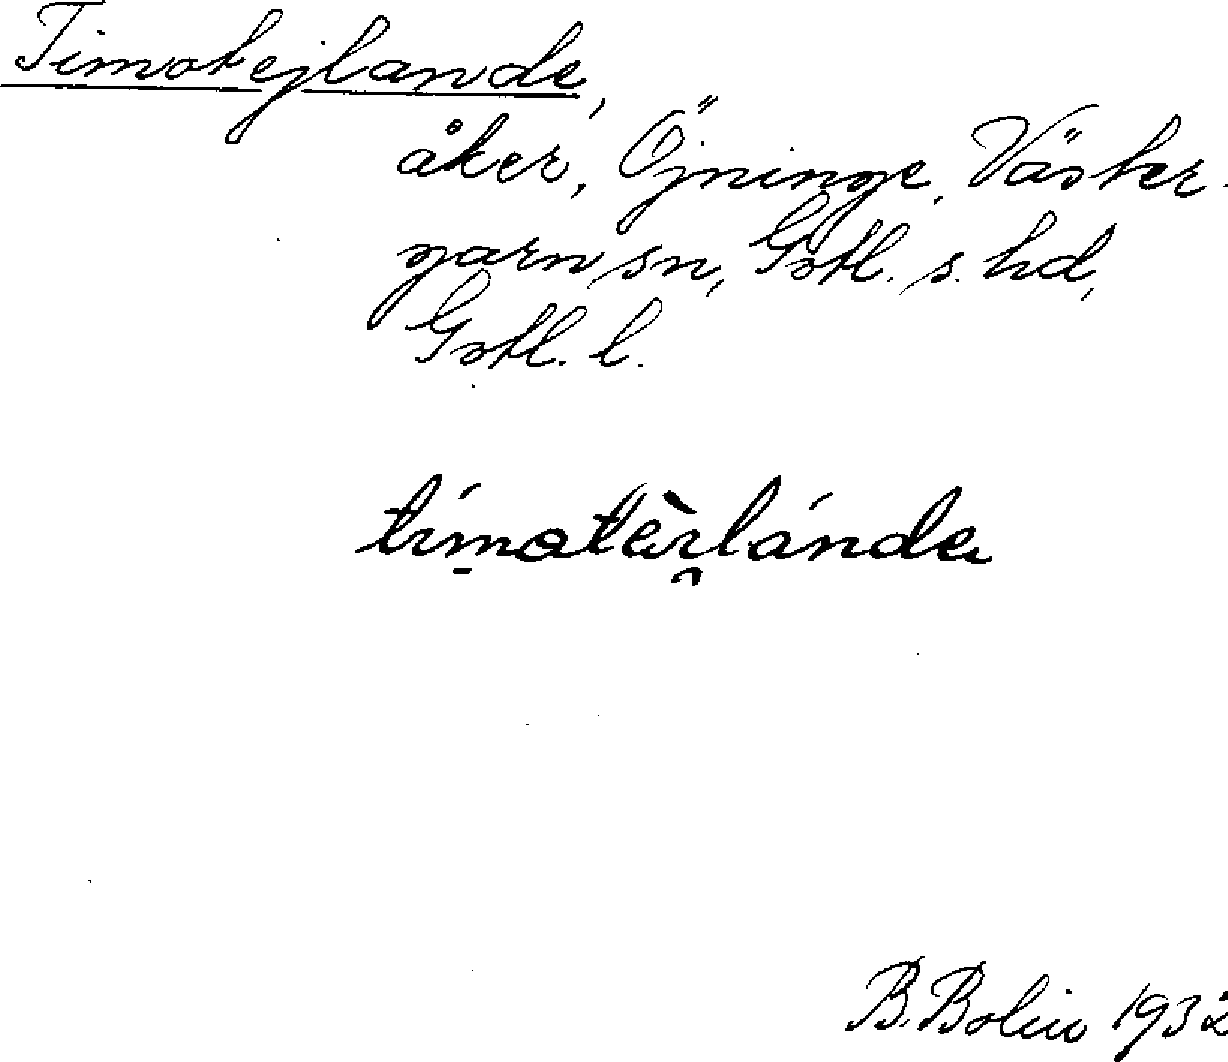 Timotejlande,
åker, Öjninge, Väster-
garn sn, Gotl. s. hd,
Gotl. l.
B. Bolin 1932